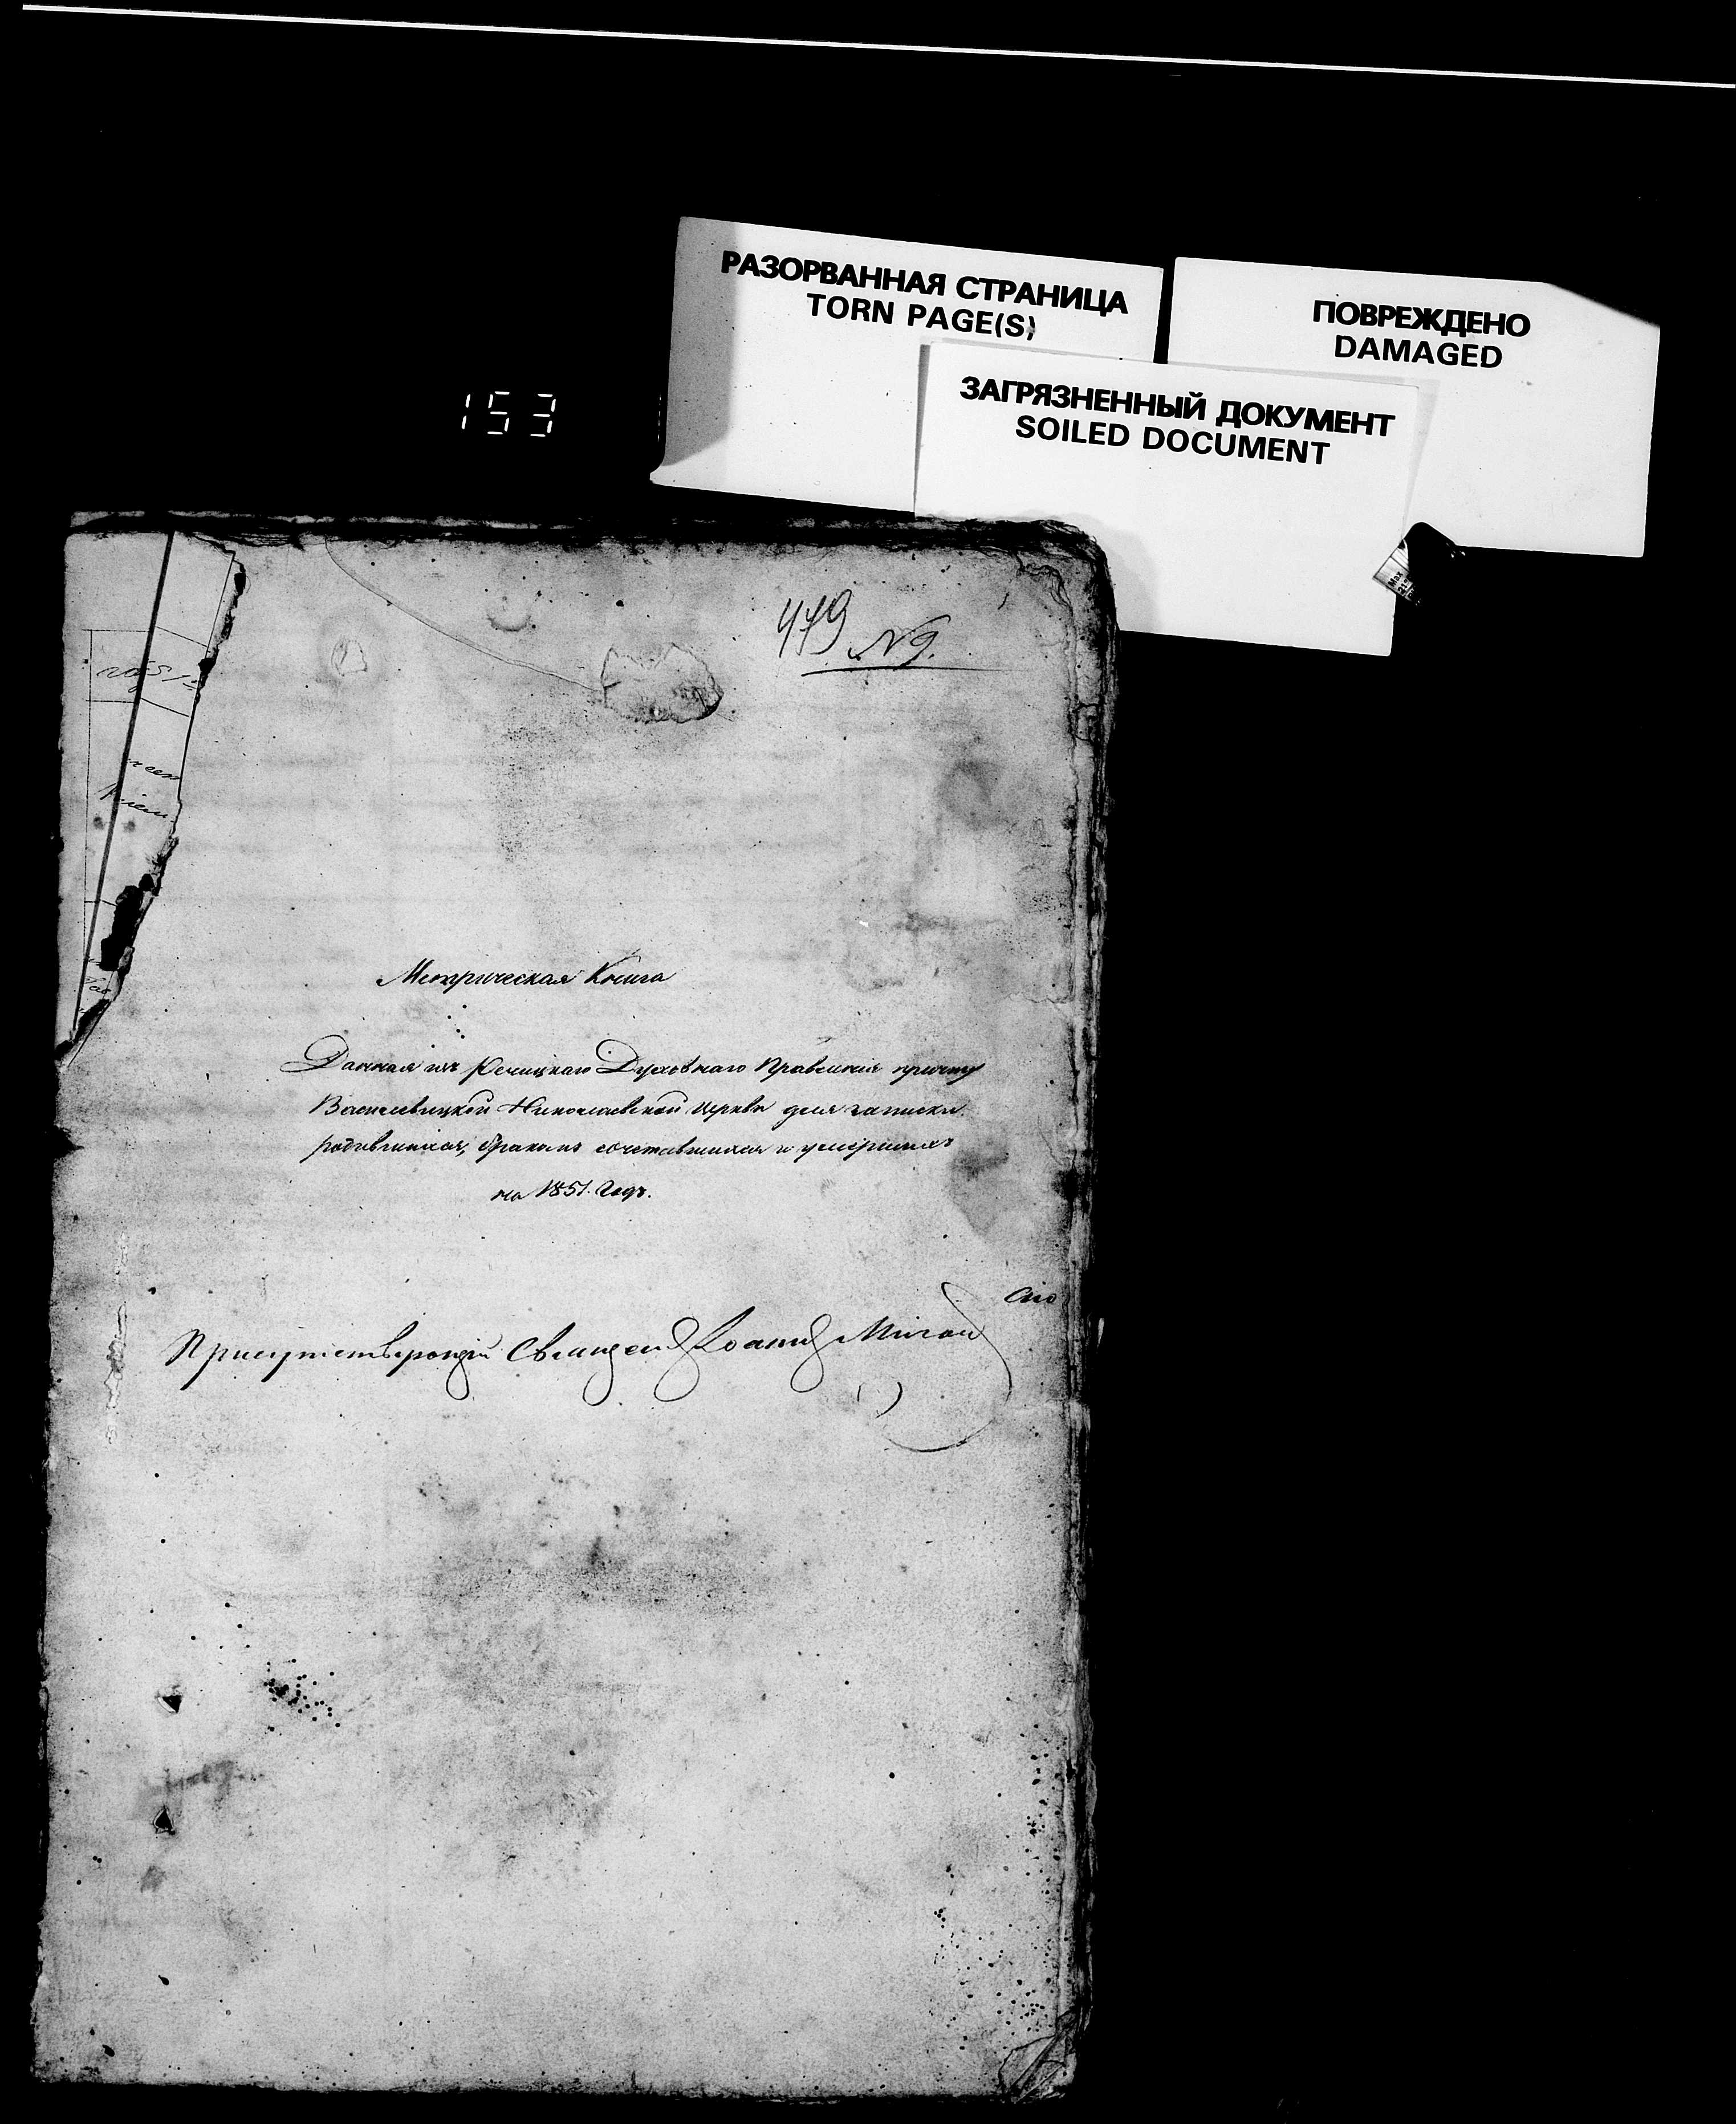 РАЗОРВАННАЯ СТРАНИЦА
TORN PAGE(S)
ПОВРЕЖДЕНО
DAMAGED
ЗАГРЯЗНЕННЫЙ ДОКУМЕНТ
SOILED DOCUMENT
153
479 N 9.
Метрическая Книга
Данная изъ Речицкаго Духовнаго Правленія причту
Василевицкой Николаевской церкви для записки
родившихся, бракомъ сочетавшихся и умершихъ
на 1851. Годъ.
Присутствующій Священ Іоаннъ